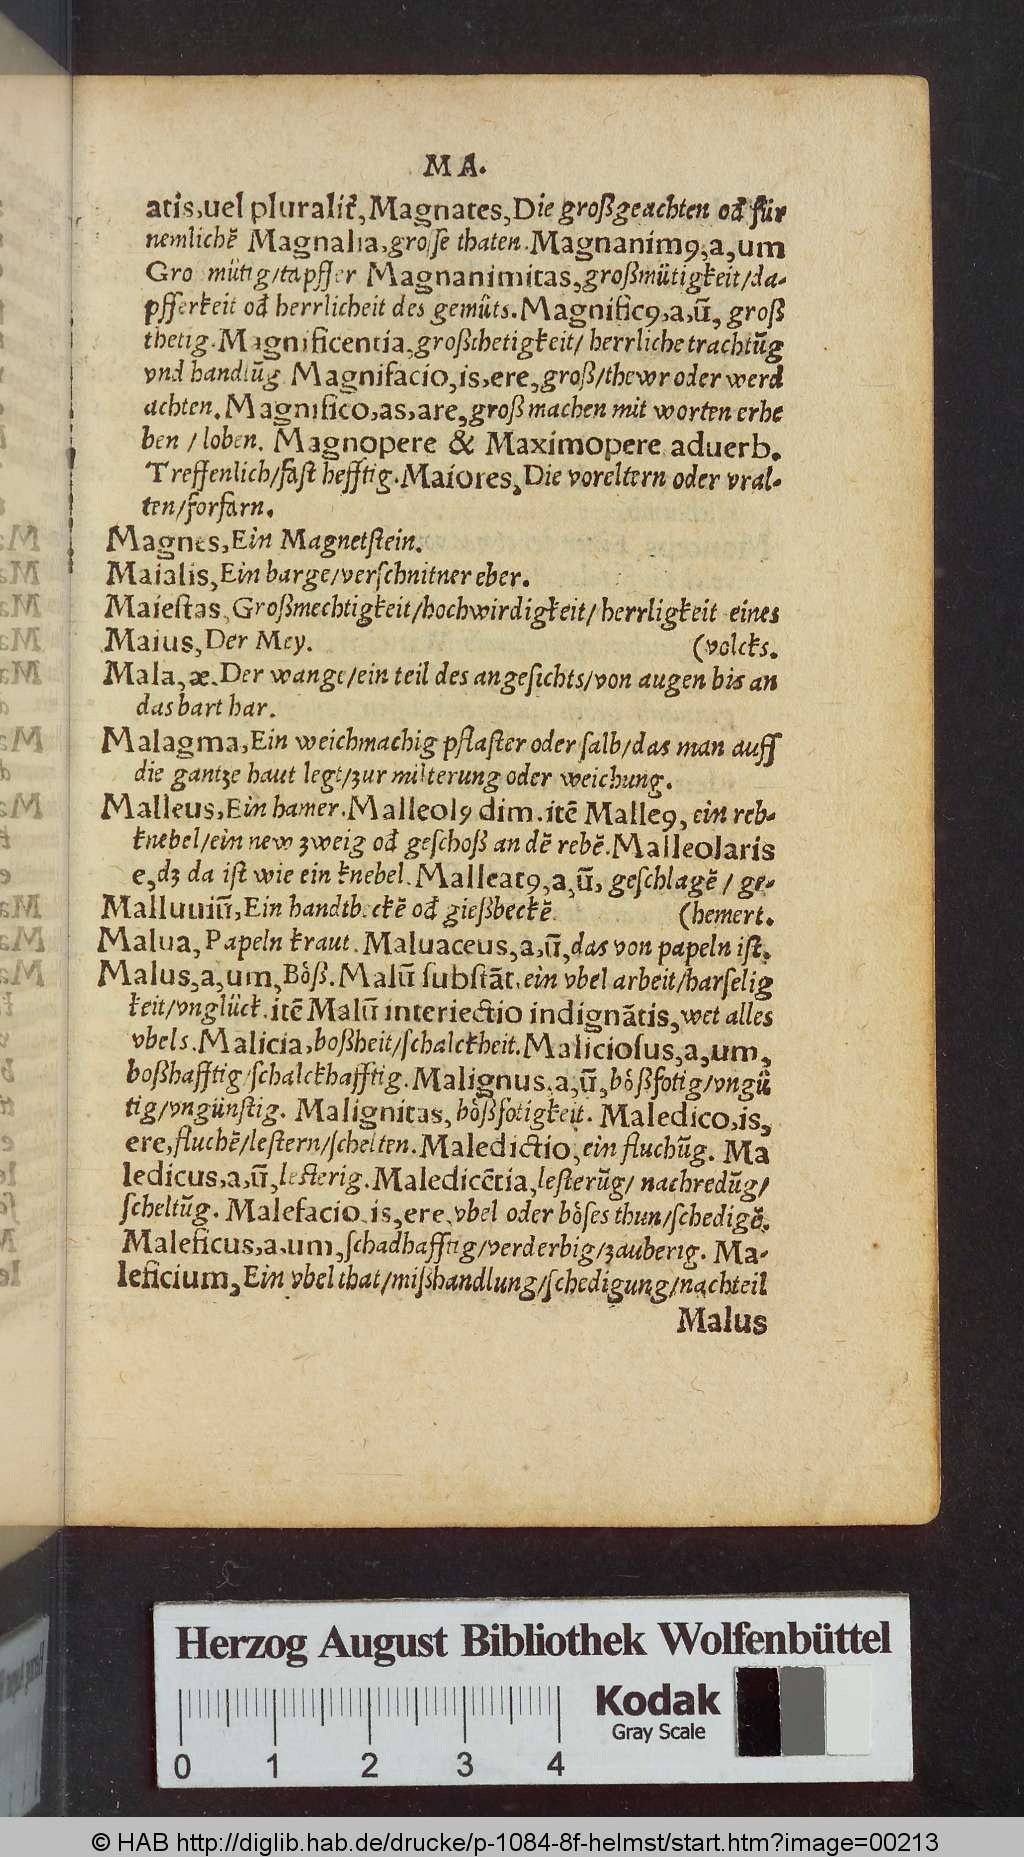 MA.
atis,uel pluralit̃, Magnates, Die großgeachten oď für
nemlichẽ Magnalia, grosse thaten. Magnanimꝰ,a,um
Gro mütig/tapffer Magnanimitas, großmütigkeit/da-
pfferkeit oď herrlicheit des gemûts. Magnificꝰ,a,ũ, groß
thetig. Magnificentia, großthetigkeit/ herrliche trachtũg
vnd handlũg Magnifacio,is,ere, groß/thewr oder werd
achten. Magnifico,as,are, groß machen mit worten erhe
ben / loben. Magnopere & Maximopere aduerb.
Treffenlich/fast hefftig. Maiores, Die voreltern oder vral-
ten/forfarn.
Magnes, Ein Magnetstein.
Maialis, Ein barge/verschnitner eber.
Maiestas, Großmechtigkeit/hochwirdigkeit/ herrligkeit eines
Maius, Der Mey. (volcks.
Mala, æ. Der wange/ein teil des angesichts/von augen bis an
das bart har.
Malagma, Ein weichmachig pflaster oder salb/das man auff
die gantze haut legt/zur milterung oder weichung.
Malleus, Ein hamer. Malleolꝰ dim. itẽ Malleꝰ, ein reb-
knebel/ein new zweig oď geschoß an dẽ rebẽ. Malleolaris
e, dz da ist wie ein knebel. Malleatꝰ,a,ũ, geschlagẽ / ge-
Malluuiũ, Ein handtbeckẽ oď gießbeckẽ. (hemert.
Malua, Papeln kraut. Maluaceus,a,ũ, das von papeln ist.
Malus,a,um, Bôß. Malũ substãt. ein vbel arbeit/harselig
keit/vnglück. itẽ Malũ interiectio indignãtis, wet alles
vbels. Malicia, boßheit/schalckheit. Maliciosus,a,um,
boßhafftig/schalckhafftig. Malignus,a,ũ, bôßfotig/vngü
tig/vngünstig. Malignitas, bôßfotigkeit. Maledico,is,
ere, fluchẽ/lestern/schelten. Maledictio, ein fluchũg. Ma
ledicus,a,ũ, lesterig. Maledicẽtia, lesterũg/ nachredũg/
scheltũg. Malefacio,is,ere, vbel oder bôses thun/schedigẽ.
Maleficus,a,um, schadhafftig/verderbig/zauberig. Ma-
leficium, Ein vbel that/mißhandlung/schedigung/nachteil
Malus
Herzog August Bibliothek Wolfenbüttel
Kodak
Gray Scale
0 1 2 3 4
© HAB http://diglib.hab.de/drucke/p-1084-8f-helmst/start.htm?image=00213